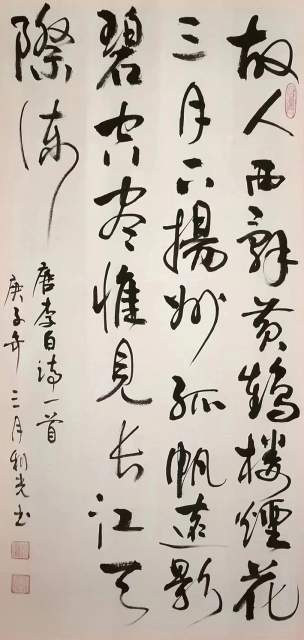 故人西辞黄鹤楼煙花
三月下揚州孤帆遠影
碧空尽惟見长江天
際流
唐李白诗一首
庚子年三月利光书